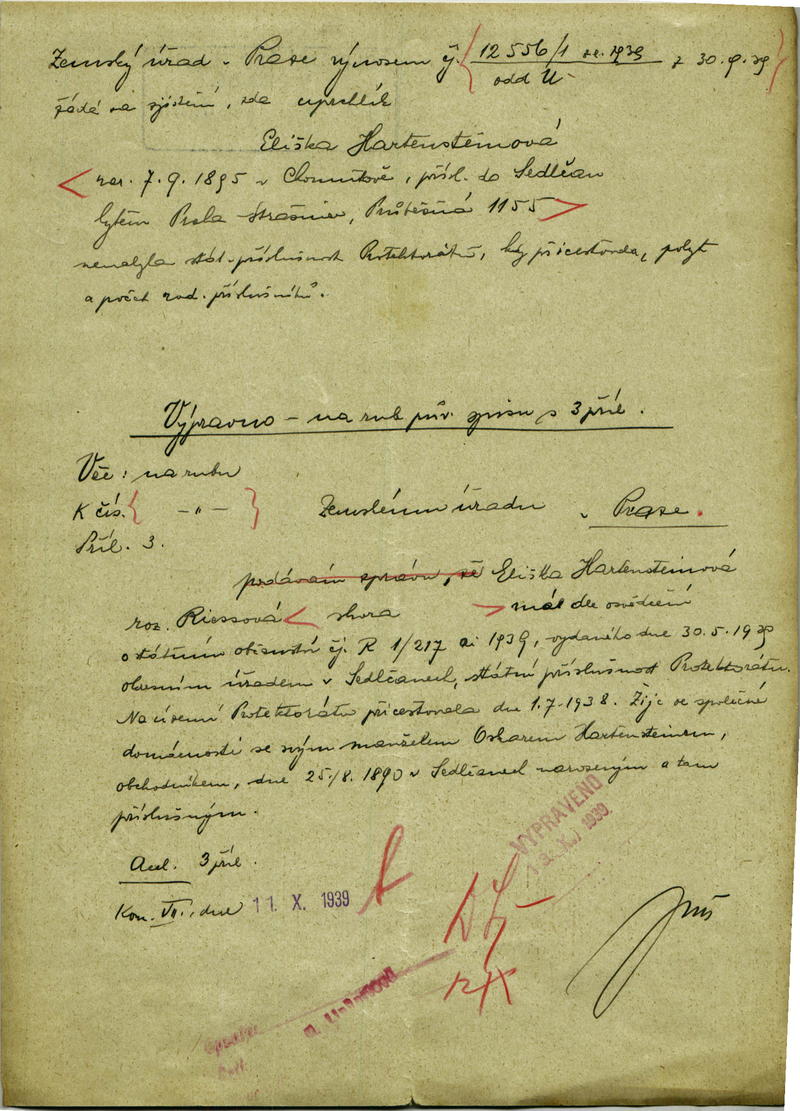 Zemský úřad v Praze výnosem čj. 12 556/1 ai 1939 z 30.9.39
odd U
žádá na zjištění, zda uprchlík
Eliška Hartensteinová
nar. 7.9.1895 v Chomutově, přísl. do Sedlčan
bytem Praha-Strašnice, Průběžná 1155
nenabyla stát. příslušnost Protektorátu, kdy přicestovala, pobyt
a počet rod. příslušníků.
Výpravno – na rub pův. spisu s 3 příl.
Věc: na rubu
K čís. – „ – Zemskému úřadu v Praze.
Příl. 3.
podávám zprávu, že Eliška Hartensteinová
roz. Riessová shora má dle osvědčení
o státním občanství čj. R 1/217 ai 1939, vydaného dne 30.5.1939
okresním úřadem v Sedlčanech, státní příslušnost Protektorátu.
Na území Protektorátu přicestovala dne 1.7.1938. Žije ve společné
domácnosti se svým manželem Oskarem Hartensteinem,
obchodníkem, dne 25./8. 1890 v Sedlčanech narozeným a tam
příslušným.
VYPRAVENO
X. 1939
Acl. 3 příl.
Kom. VII., dne 11. X. 1939